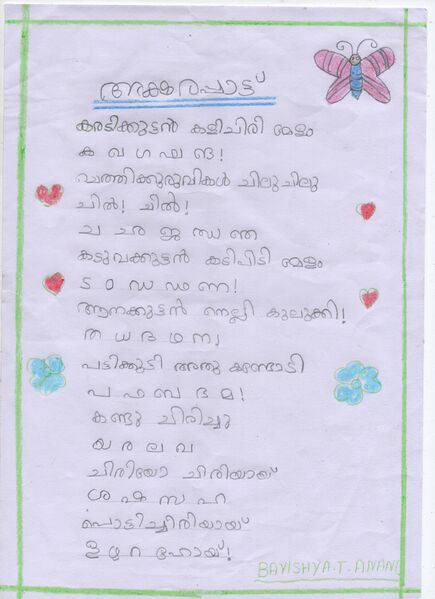 അക്ഷരപ്പാട്ട്
കരടിക്കുട്ടൻ കളിചിരി മേളം
ക ഖ ഗ ഘ ങ!
ചിലുചിലു
ചിൽ! ചിൽ!
ച ഛ ജ ഝ ഞ
കടുവക്കുട്ടൻ കടിപിടി മേളം
ട ഠ ഡ ഢ ണ!
ആനക്കുട്ടൻ നെല്ലി കുലുക്കി!
ത ഥ ദ ധ ന
പട്ടിക്കുട്ടി അതു കണ്ടോടി
പ ഫ ബ ഭ മ!
കണ്ടു ചിരിച്ചു
യ ര ല വ
ചിരിയോ ചിരിയായ്
ശ ഷ സ ഹ
പൊട്ടിച്ചിരിയായ്
ള ഴ റ ഹോയ്!
BAVISHYA.T.ANAND